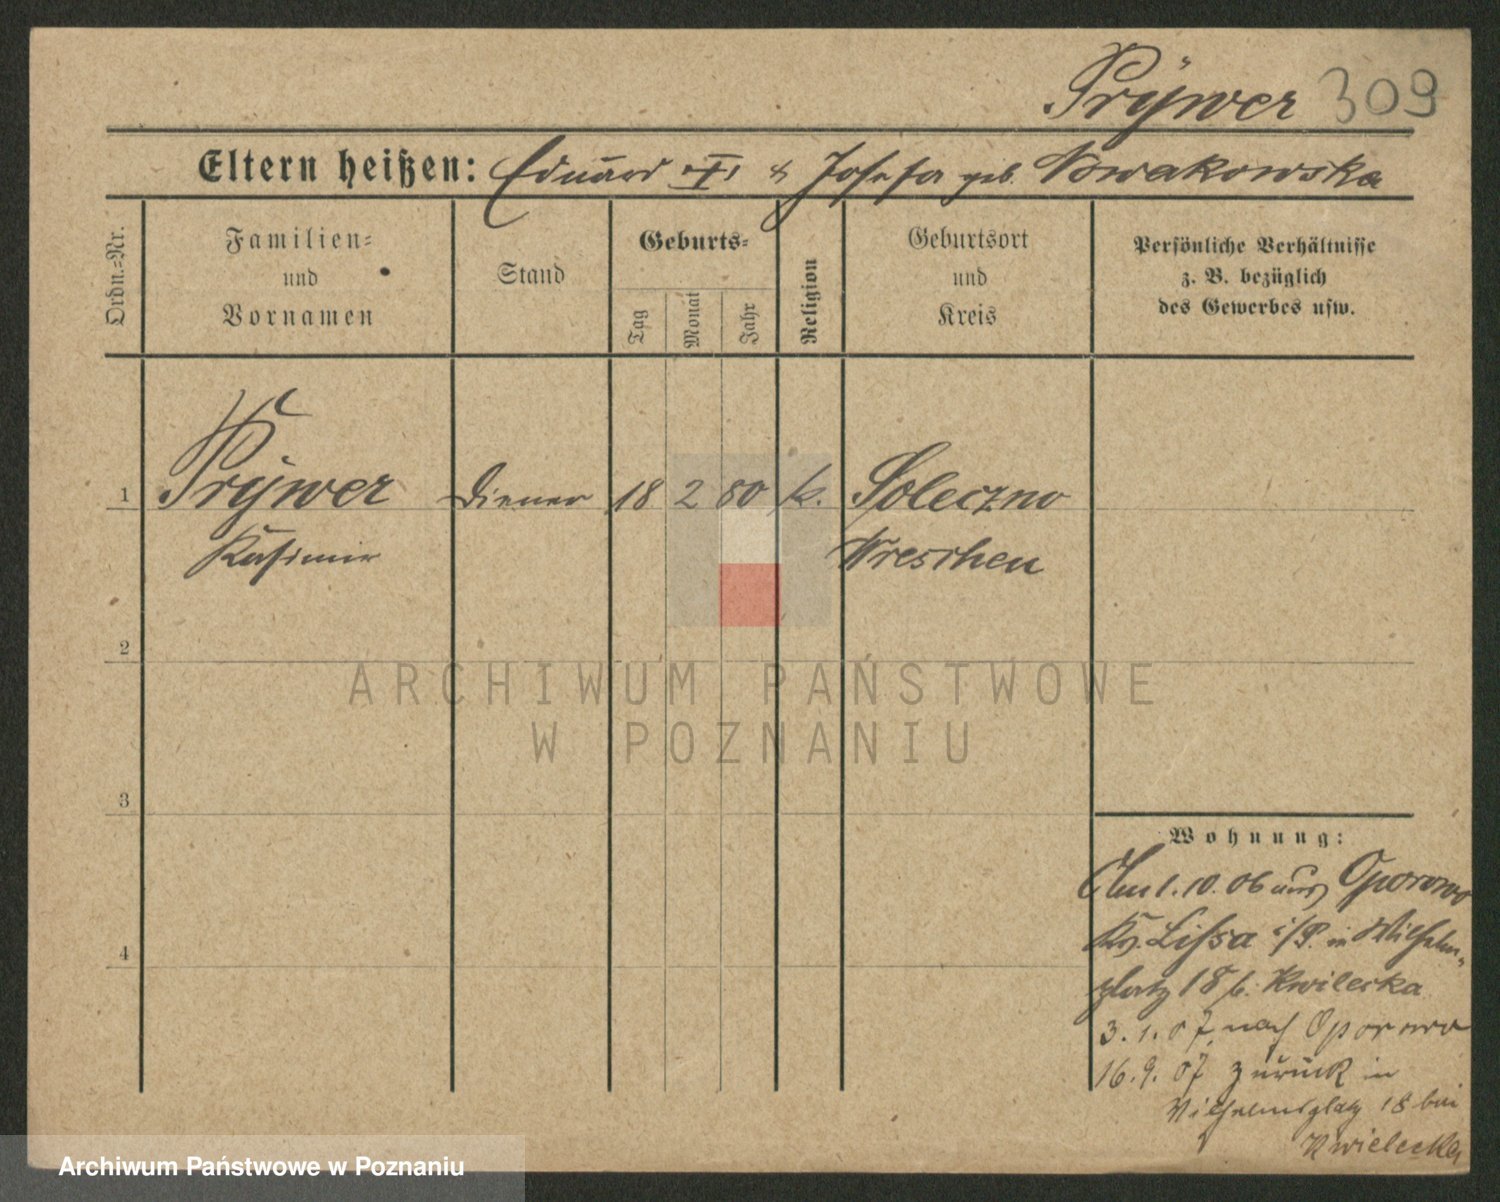 Prÿwer 309
Eltern heißen: Eduard & Josefa geb. Nowakowska
Ordn.-Nr.
Familien- und Vornamen
Stand
Geburts-
Tag
Monat
Jahr
Religion
Geburtsort und Kreis
Persönliche Verhältnisse
z. B. bezüglich
des Gewerbes usw.
1 Prÿwer Diener 18 2 80 k. Soleczno
Kasimir Wreschen
2
3
4
Wohnung:
Am 1.10.06 aus Oporowo
Kr. Lissa i/P. in Wilhelm-
platz 18 b. Kwilecka
3.1.07 nach Oporowo
16.9.07 zurück in
Wilhelmsplatz 18 bei
Kwielecka
ARCHIWUM PAŃSTWOWE
W POZNANIU
Archiwum Państwowe w Poznaniu